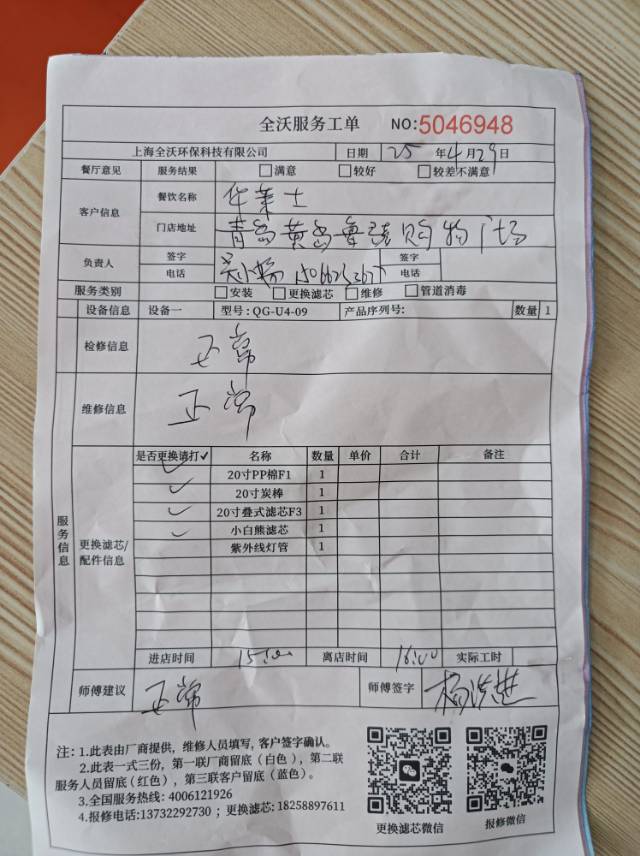 全沃服务工单 NO:5046948
上海全沃环保科技有限公司 日期 25 年 4 月 29 日
餐厅意见 服务结果 □满意 □较好 □较差不满意
客户信息 餐饮名称 华莱士
门店地址 青岛黄岛 购物广场
负责人 签字 签字
电话 电话
服务类别 □安装 □更换滤芯 □维修 □管道消毒
设备信息 设备一 型号:QG-U4-09 产品序列号: 数量 1
检修信息 正常
维修信息 正常
服务信息
更换滤芯/配件信息
是否更换请打✓ 名称 数量 单价 合计 备注
✓ 20寸PP棉F1 1
✓ 20寸炭棒 1
✓ 20寸叠式滤芯F3 1
✓ 小白熊滤芯 1
紫外线灯管 1
进店时间 15:00 离店时间 16:00 实际工时
师傅建议 正常 师傅签字 杨洪进
注: 1.此表由厂商提供, 维修人员填写, 客户签字确认。
2.此表一式三份, 第一联厂商留底(白色), 第二联
服务人员留底(红色), 第三联客户留底(蓝色)。
3.全国服务热线: 4006121926
4.报修电话:13732292730 ; 更换滤芯:18258897611
更换滤芯微信 报修微信